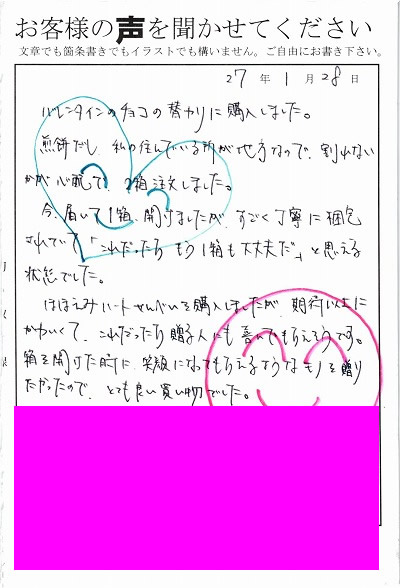 お客様の声を聞かせてください
文章でも箇条書きでもイラストでも構いません。ご自由にお書き下さい。
27年1月28日
バレンタインのチョコの替わりに購入しました。
煎餅だし、私の住んでいる所が地方なので、割れない
かが心配で、2箱注文しました。
今、届いて1箱、開けましたが、すごく丁寧に梱包
されていて「これだったらもう1箱も大丈夫だ」と思える
状態でした。
ほほえみハートせんべいを購入しましたが、期待以上に
かわいくて、これだったら贈る人にも喜んでもらえそうです。
箱を開けた時に、笑顔になってもらえるようなモノを贈り
たかったので、とても良い買い物でした。